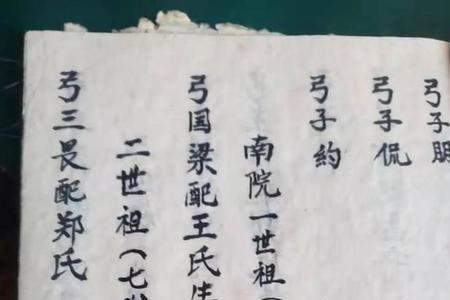 弓子朋
弓子侃
弓子約
南院一世祖(
弓国梁配王氏生
二世祖(七
弓三畏配郑氏